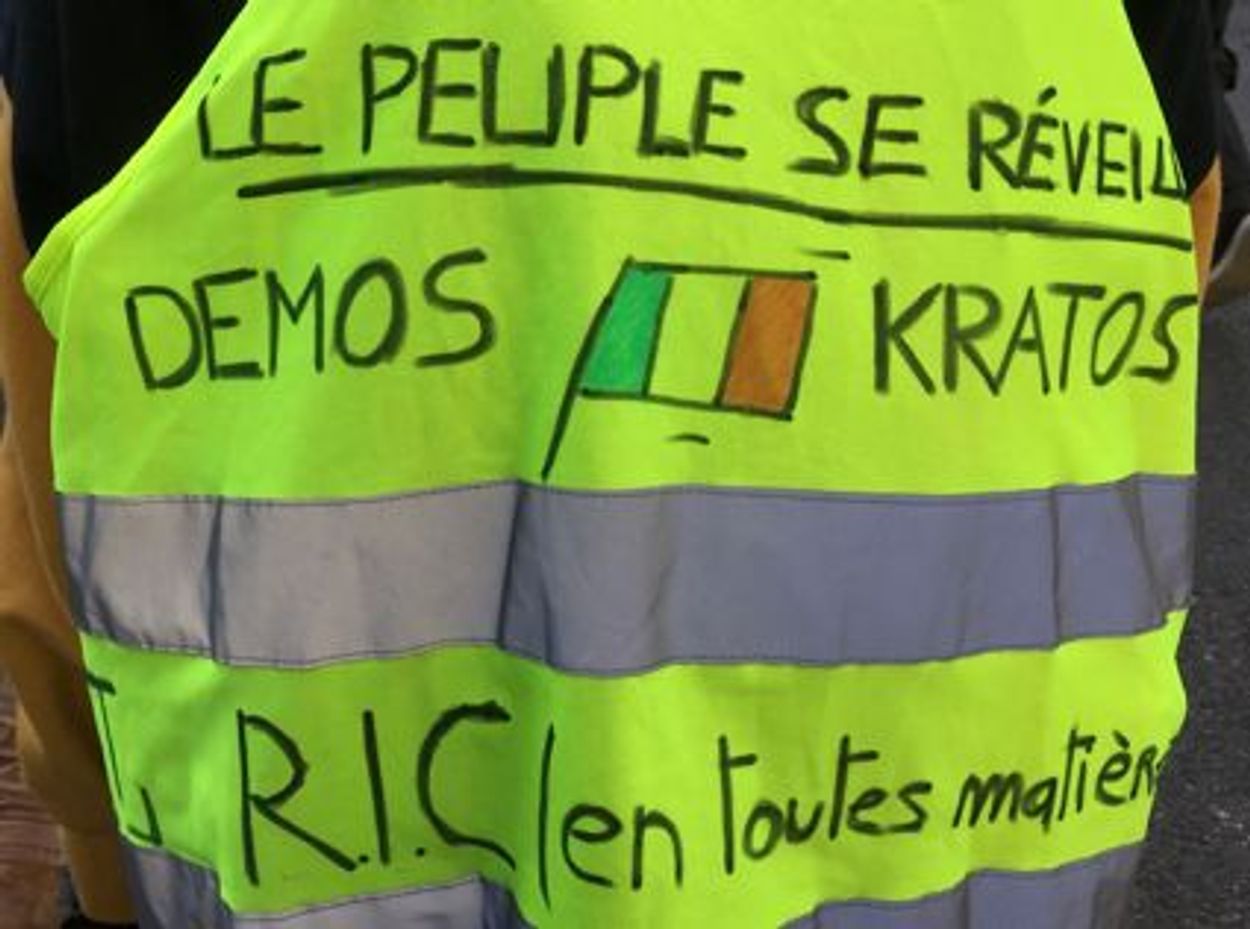 LE PEUPLE SE RÉVEILL
DEMOS KRATOS
R.I.C en toutes matière